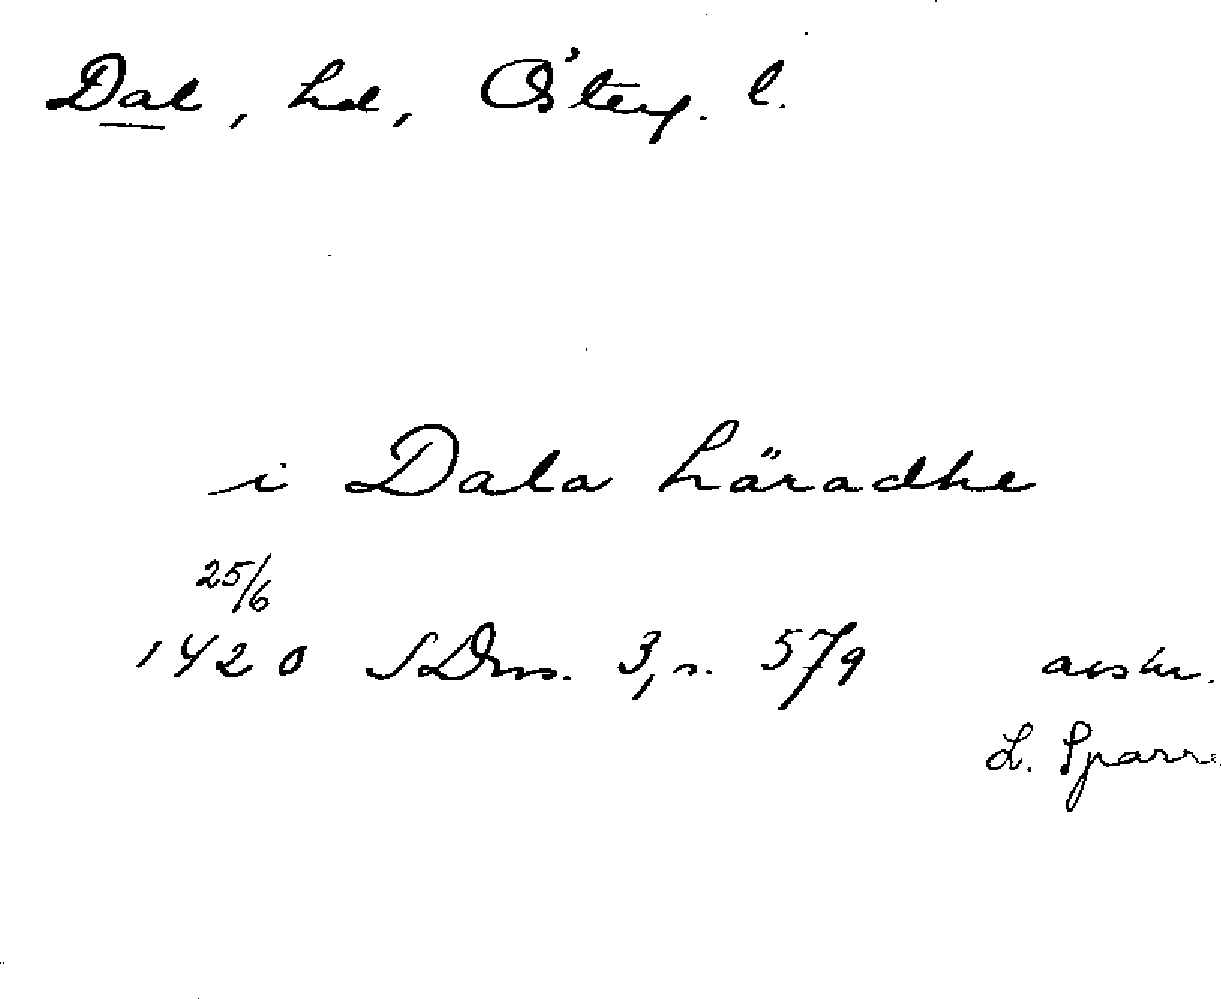 Dal, hd, Österg. l.
i Dala häradhe
25/6
1420 SDns. 3, s. 579 avskr.
L. Sparre